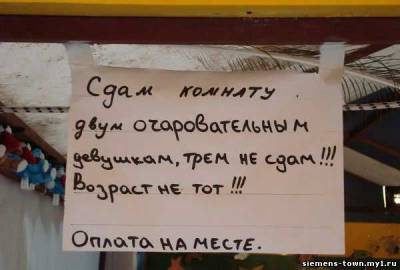 Сдам комнату.
двум очаровательным
девушкам, трем не сдам!!!
Возраст не тот!!!
Оплата на месте.
siemens-town.my1.ru